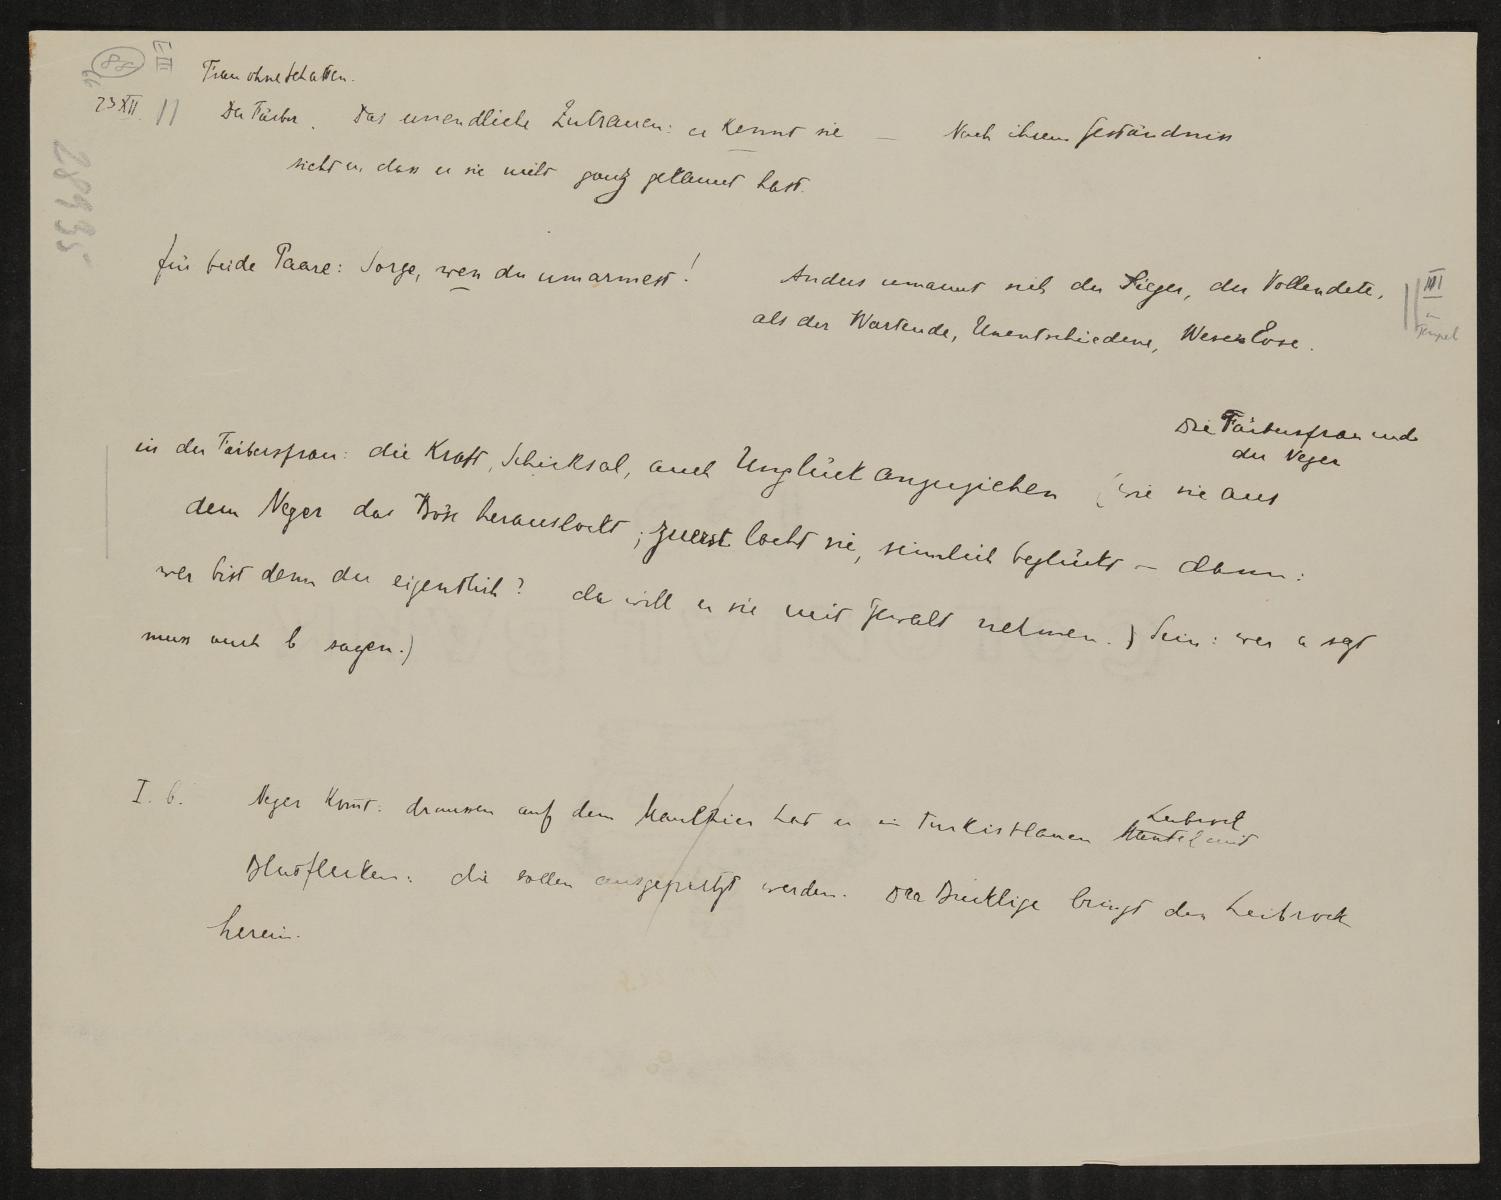 88
Frau ohne Schatten.
23 XII. Der Färber. Das unendliche Zutrauen: er kennt sie — Nach ihrem Geständniss
sieht er, dass er sie nicht ganz gekannt hat.
für beide Paare: Sorge, wen du umarmest! Anders umarmt sich der Sieger, der Vollendete,
als der Wartende, Unentschiedene, Wesenlose.
III
im
Tempel
Die Färbersfrau und
der Neger
in der Färbersfrau: die Kraft, Schicksal, auch Unglück anzuziehen (wie sie aus
dem Neger das Böse herauslockt; zuerst lacht sie, sinnlich beglückt – dann:
wer bist denn du eigentlich? da will er sie mit Gewalt nehmen.) Sein: wer a sagt
muss auch b sagen.)
I. b. Neger kom̄t: draussen auf dem Maulthier hat er ein turkistanen Mantel mit
Leibrock
Blutflecken: die sollen ausgeputzt werden. Der Bucklige bringt den Leibrock
herein.